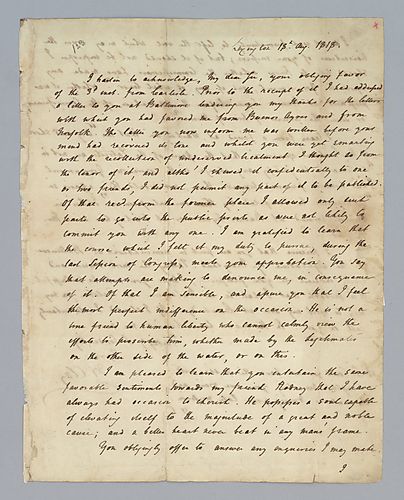 Lexington 13th. Aug. 1818.
I hasten to acknowledge, My dear Sir, your obliging favor
of the 3d. inst. from Carlisle. Prior to the receipt of it I had addressed
a letter to you at Baltimore tendering you my thanks for the letters
with which you had favored me from Buenos Ayres and from
Norfolk. The latter you now inform me was written before your
mind had recovered its tone and whilst you were yet smarting
with the recollection of undeserved treatment. I thought so from
the tenor of it, and altho' I shewed it confidentially to one
or two friends, I did not permit any part of it to be published.
Of that recd. from the former place I allowed only such
parts to go into the public prints as were not likely to
commit you with any one. I am gratified to learn that
the course which I felt it my duty to pursue, during the
last Session of Congress, meets your approbation. You say
that attempts are making to denounce me, in consequence
of it. Of that I am sensible, and assure you that I feel
the most perfect indifference on the occasion. He is not a
true friend to human liberty who cannot calmly view the
efforts to proscribe him, whether made by the legitimates
on the other side of the water, or on this.
I am pleased to learn that you entertain the same
favorable sentiments towards my friend Rodney that I have
always had occasion to cherish. He possesses a soul capable
of elevating itself to the magnitude of a great and noble
cause; and a better heart never beat in any mans frame.
You obligingly offer to answer any enquiries I may make.
I